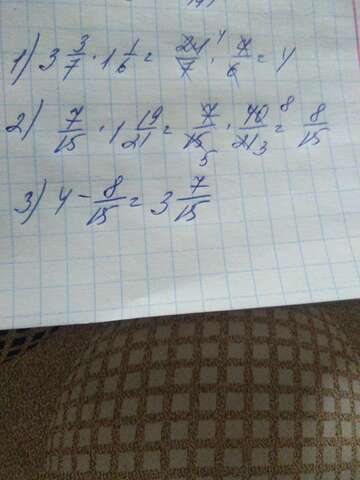 1) 3 3/7 · 1 1/6 = 24/7 · 7/6 = 4
2) 7/15 · 1 19/21 = 7/15 · 40/21 = 8/15
3) 4 - 8/15 = 3 7/15